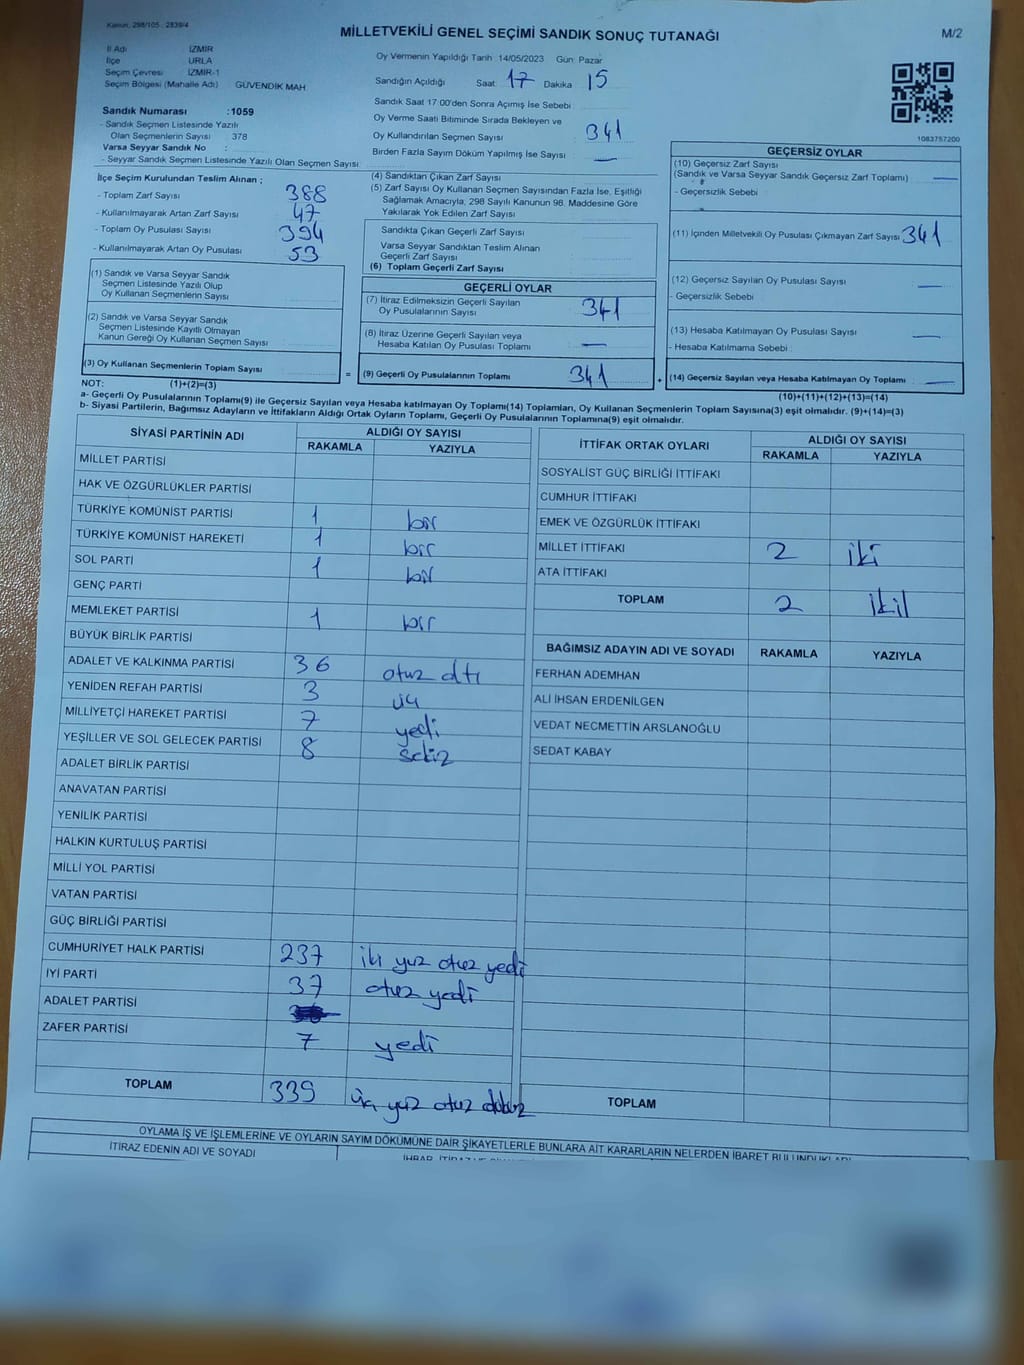 Kanun, 298/105 , 2839/4
MİLLETVEKİLİ GENEL SEÇİMİ SANDIK SONUÇ TUTANAĞI
M/2
İl Adı İZMİR
İlçe URLA
Seçim Çevresi İZMİR-1
Seçim Bölgesi (Mahalle Adı) GÜVENDİK MAH
Sandık Numarası :1059
- Sandık Seçmen Listesinde Yazılı
Olan Seçmenlerin Sayısı : 378
Varsa Seyyar Sandık No :
- Seyyar Sandık Seçmen Listesinde Yazılı Olan Seçmen Sayısı:
Oy Vermenin Yapıldığı Tarih 14/05/2023 Gün: Pazar
Sandığın Açıldığı Saat: 17 Dakika 15
Sandık Saat 17:00'den Sonra Açımış İse Sebebi
Oy Verme Saati Bitiminde Sırada Bekleyen ve
Oy Kullandırılan Seçmen Sayısı 341
Birden Fazla Sayım Döküm Yapılmış İse Sayısı —
1083757200
İlçe Seçim Kurulundan Teslim Alınan ;
- Toplam Zarf Sayısı 388
- Kullanılmayarak Artan Zarf Sayısı 47
- Toplam Oy Pusulası Sayısı 394
- Kullanılmayarak Artan Oy Pusulası 53
(1) Sandık ve Varsa Seyyar Sandık
Seçmen Listesinde Yazılı Olup
Oy Kullanan Seçmenlerin Sayısı
(2) Sandık ve Varsa Seyyar Sandık
Seçmen Listesinde Kayıtlı Olmayan
Kanun Gereği Oy Kullanan Seçmen Sayısı
(3) Oy Kullanan Seçmenlerin Toplam Sayısı
(4) Sandıktan Çıkan Zarf Sayısı
(5) Zarf Sayısı Oy Kullanan Seçmen Sayısından Fazla İse, Eşitliği
Sağlamak Amacıyla, 298 Sayılı Kanunun 98. Maddesine Göre
Yakılarak Yok Edilen Zarf Sayısı
Sandıkta Çıkan Geçerli Zarf Sayısı
Varsa Seyyar Sandıktan Teslim Alınan
Geçerli Zarf Sayısı
(6) Toplam Geçerli Zarf Sayısı
GEÇERLİ OYLAR
(7) İtiraz Edilmeksizin Geçerli Sayılan
Oy Pusulalarının Sayısı 341
(8) İtiraz Üzerine Geçerli Sayılan veya
Hesaba Katılan Oy Pusulası Toplamı —
= (9) Geçerli Oy Pusulalarının Toplamı 341 +
GEÇERSİZ OYLAR
(10) Geçersiz Zarf Sayısı
(Sandık ve Varsa Seyyar Sandık Geçersiz Zarf Toplamı) —
- Geçersizlik Sebebi
(11) İçinden Milletvekili Oy Pusulası Çıkmayan Zarf Sayısı 341
(12) Geçersiz Sayılan Oy Pusulası Sayısı —
- Geçersizlik Sebebi
(13) Hesaba Katılmayan Oy Pusulası Sayısı —
- Hesaba Katılmama Sebebi
(14) Geçersiz Sayılan veya Hesaba Katılmayan Oy Toplamı —
NOT: (1)+(2)=(3)
(10)+(11)+(12)+(13)=(14)
a- Geçerli Oy Pusulalarının Toplamı(9) ile Geçersiz Sayılan veya Hesaba katılmayan Oy Toplamı(14) Toplamları, Oy Kullanan Seçmenlerin Toplam Sayısına(3) eşit olmalıdır. (9)+(14)=(3)
b- Siyasi Partilerin, Bağımsız Adayların ve İttifakların Aldığı Ortak Oyların Toplamı, Geçerli Oy Pusulalarının Toplamına(9) eşit olmalıdır.
SİYASİ PARTİNİN ADI ALDIĞI OY SAYISI
RAKAMLA YAZIYLA
MİLLET PARTİSİ
HAK VE ÖZGÜRLÜKLER PARTİSİ
TÜRKİYE KOMÜNİST PARTİSİ 1 bir
TÜRKİYE KOMÜNİST HAREKETİ 1 bir
SOL PARTİ 1 bir
GENÇ PARTİ
MEMLEKET PARTİSİ 1 bir
BÜYÜK BİRLİK PARTİSİ
ADALET VE KALKINMA PARTİSİ 36 otuz altı
YENİDEN REFAH PARTİSİ 3 üç
MİLLİYETÇİ HAREKET PARTİSİ 7 yedi
YEŞİLLER VE SOL GELECEK PARTİSİ 8 sekiz
ADALET BİRLİK PARTİSİ
ANAVATAN PARTİSİ
YENİLİK PARTİSİ
HALKIN KURTULUŞ PARTİSİ
MİLLİ YOL PARTİSİ
VATAN PARTİSİ
GÜÇ BİRLİĞİ PARTİSİ
CUMHURİYET HALK PARTİSİ 237 iki yuz otuz yedi
İYİ PARTİ 37 otuz yedi
ADALET PARTİSİ
ZAFER PARTİSİ 7 yedi
TOPLAM 339 üç yuz otuz dokuz
İTTİFAK ORTAK OYLARI ALDIĞI OY SAYISI
RAKAMLA YAZIYLA
SOSYALİST GÜÇ BİRLİĞİ İTTİFAKI
CUMHUR İTTİFAKI
EMEK VE ÖZGÜRLÜK İTTİFAKI
MİLLET İTTİFAKI 2 iki
ATA İTTİFAKI
TOPLAM 2 ikil
BAĞIMSIZ ADAYIN ADI VE SOYADI RAKAMLA YAZIYLA
FERHAN ADEMHAN
ALİ İHSAN ERDENİLGEN
VEDAT NECMETTİN ARSLANOĞLU
SEDAT KABAY
TOPLAM
OYLAMA İŞ VE İŞLEMLERİNE VE OYLARIN SAYIM DÖKÜMÜNE DAİR ŞİKAYETLERLE BUNLARA AİT KARARLARIN NELERDEN İBARET BULUNDUKLARI
İTİRAZ EDENİN ADI VE SOYADI